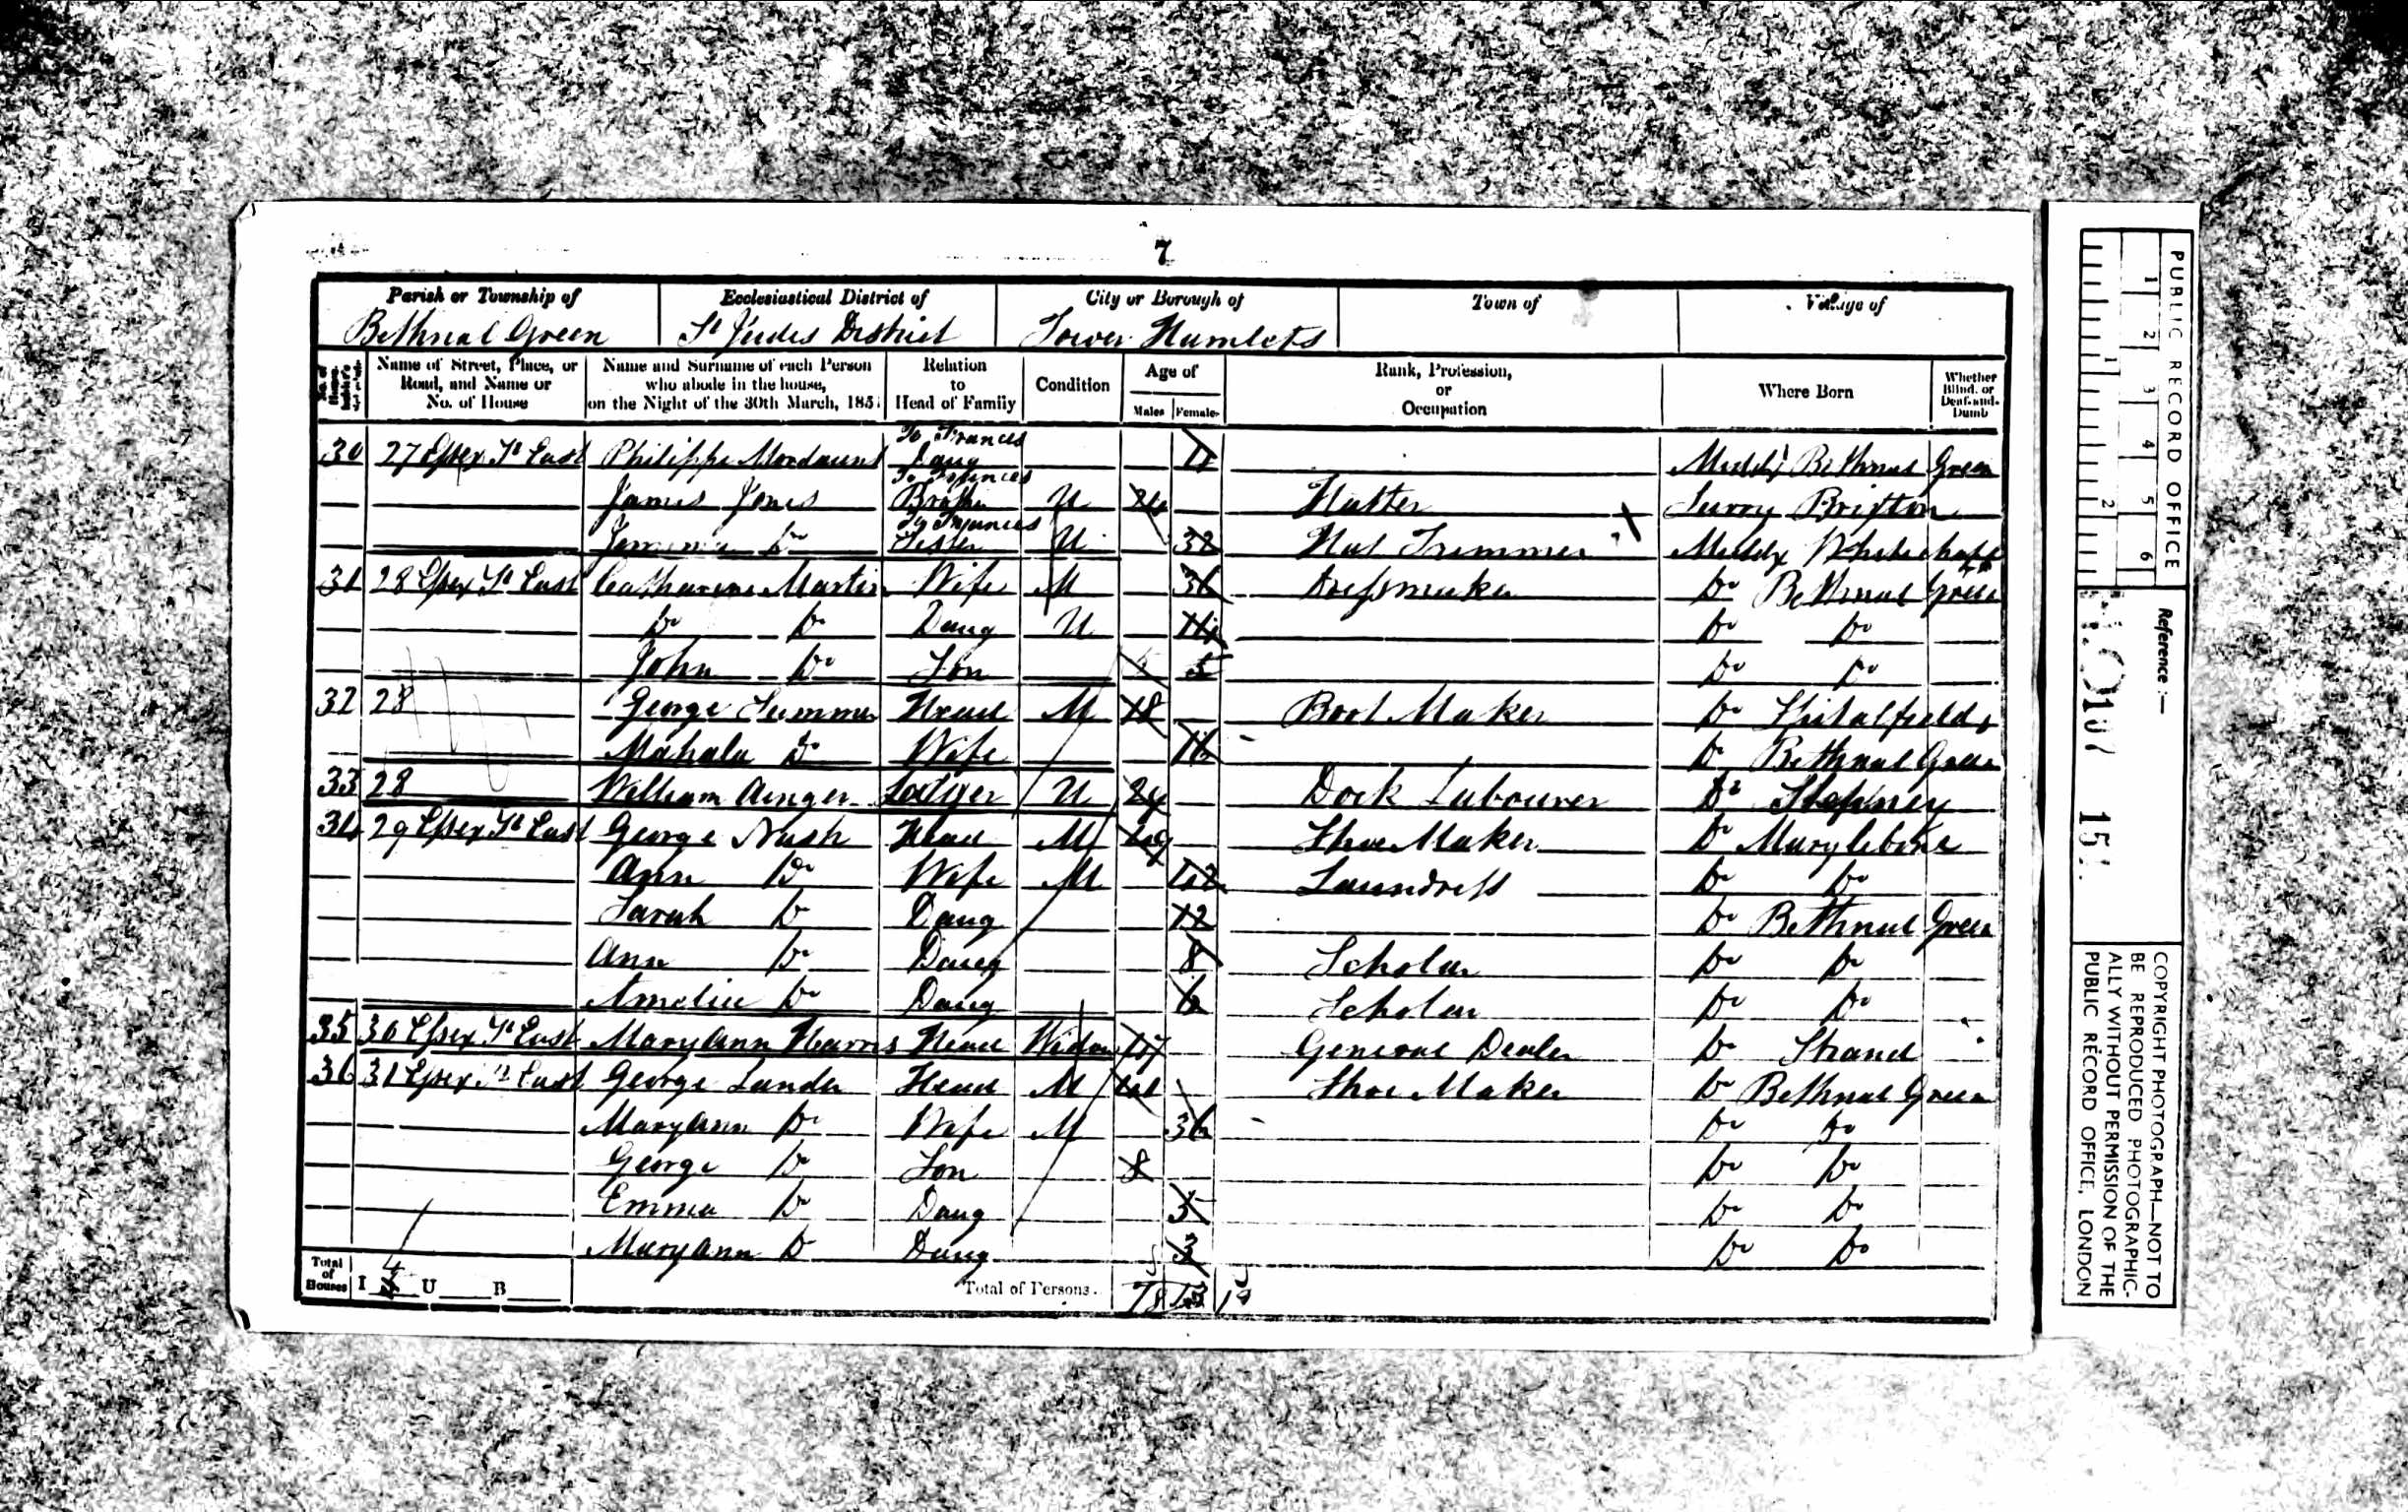 7
Parish or Township of Ecclesiastical District of City or Borough of Town of Village of
Bethnal Green St Judes District Tower Hamlets
Name of Street, Place, or Road, and Name or No. of House
Name and Surname of each Person who abode in the house, on the Night of the 30th March, 1851
Relation to Head of Family
Condition
Age of
Males Females
Rank, Profession, or Occupation
Where Born
Whether Blind, or Deaf-and-Dumb
To Frances
30 27 Essex St East Philippe Mordaunt Daug Middx Bethnal Green
To Frances
James Jones Brother U Hatter Surry Brixton
To Frances
Jemima Do Sister U 32 Hat Trimmer Middx Whitechapel
31 28 Essex St East Catharine Martin Wife M 36 Dressmaker Do Bethnal Green
Do Do Daug U 14 Do Do
John Do Son 5 Do Do
32 28 George Summer Head M 18 Boot Maker Do Spitalfields
Mahala Do Wife 16 Do Bethnal Green
33 28 William Ainger Lodger U 24 Dock Labourer Do Stepney
34 29 Essex St East George Nash Head M 49 Shoe Maker Do Marylebone
Ann Do Wife M 42 Laundress Do Do
Sarah Do Daug 12 Do Bethnal Green
Ann Do Daug 8 Scholar Do Do
Amelia Do Daug 6 Scholar Do Do
35 30 Essex St East Maryann Harris Head Widow General Dealer Do Strand
36 31 Essex St East George Lunda Head M 41 Shoe Maker Do Bethnal Green
Maryann Do Wife M 36 Do Do
George Do Son 8 Do Do
Emma Do Daug 5 Do Do
Maryann Do Daug 3 Do Do
Total of Houses I 4 U B Total of Persons
PUBLIC RECORD OFFICE
1 2 3 4 5 6
1 2
Reference :—
H.O. 107
COPYRIGHT PHOTOGRAPH—NOT TO
BE REPRODUCED PHOTOGRAPHIC-
ALLY WITHOUT PERMISSION OF THE
PUBLIC RECORD OFFICE, LONDON